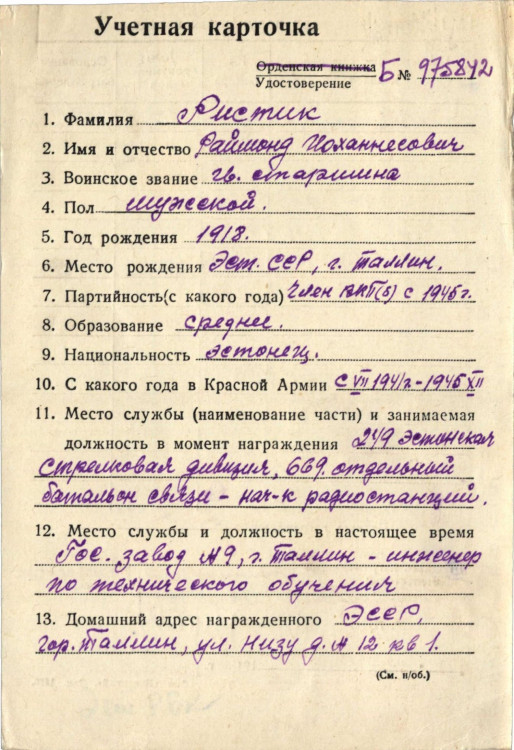 Учетная карточка
Орденская книжка
Удостоверение Б № 975842
1. Фамилия Ристик
2. Имя и отчество Раймонд Иоханнесович
3. Воинское звание гв. старшина
4. Пол мужской.
5. Год рождения 1918.
6. Место рождения Эст. ССР, г. Таллин.
7. Партийность(с какого года) Член ВКП(б) с 1945 г.
8. Образование среднее.
9. Национальность эстонец.
10. С какого года в Красной Армии с VII 1941 г. - 1945 XII
11. Место службы (наименование части) и занимаемая
должность в момент награждения 249 Эстонская
стрелковая дивизия, 669. отдельный
батальон связи - нач-к радиостанций.
12. Место службы и должность в настоящее время
Гос. завод №9, г. Таллин - инженер
по технического обучения
13. Домашний адрес награжденного ЭССР,
гор. Таллин, ул. Низу д. № 12 кв 1.
(См. н/об.)